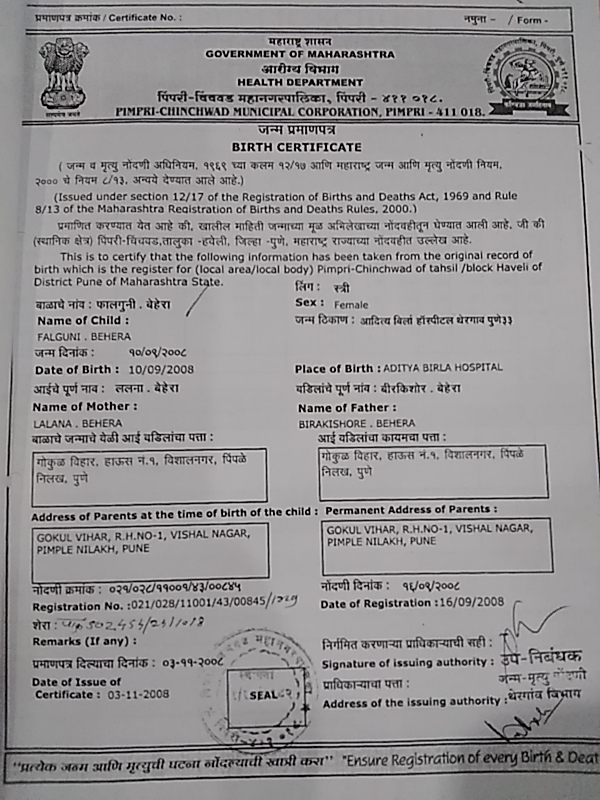 प्रमाणपत्र क्रमांक / Certificate No. : नमुना - / Form -
महाराष्ट्र शासन
GOVERNMENT OF MAHARASHTRA
आरोग्य विभाग
HEALTH DEPARTMENT
पिंपरी-चिंचवड महानगरपालिका, पिंपरी - ४११ ०१८.
PIMPRI-CHINCHWAD MUNICIPAL CORPORATION, PIMPRI - 411 018.
सत्यमेव जयते
जन्म प्रमाणपत्र
BIRTH CERTIFICATE
( जन्म व मृत्यु नोंदणी अधिनियम, १९६९ च्या कलम १२/१७ आणि महाराष्ट्र जन्म आणि मृत्यु नोंदणी नियम,
२००० चे नियम ८/१३, अन्वये देण्यात आले आहे.)
(Issued under section 12/17 of the Registration of Births and Deaths Act, 1969 and Rule
8/13 of the Maharashtra Registration of Births and Deaths Rules, 2000.)
प्रमाणित करण्यात येत आहे की, खालील माहिती जन्माच्या मूळ अभिलेखाच्या नोंदवहीतून घेण्यात आली आहे. जी की
(स्थानिक क्षेत्र) पिंपरी-चिंचवड,तालुका -हवेली, जिल्हा -पुणे, महाराष्ट्र राज्याच्या नोंदवहीत उल्लेख आहे.
This is to certify that the following information has been taken from the original record of
birth which is the register for (local area/local body) Pimpri-Chinchwad of tahsil /block Haveli of
District Pune of Maharashtra State.
लिंग : स्त्री
बाळाचे नांव : फालगुनी . बेहेरा Sex : Female
Name of Child : जन्म ठिकाण : आदित्य बिर्ला हॉस्पीटल थेरगाव पुणे३३
FALGUNI . BEHERA
जन्म दिनांक : १०/०९/२००८
Date of Birth : 10/09/2008 Place of Birth : ADITYA BIRLA HOSPITAL
आईचे पूर्ण नाव : ललना . बेहेरा वडिलांचे पूर्ण नाव : बीरकिशोर . बेहेरा
Name of Mother : Name of Father :
LALANA . BEHERA BIRAKISHORE . BEHERA
बाळाचे जन्माचे वेळी आई वडिलांचा पत्ता : आई वडिलांचा कायमचा पत्ता :
गोकुळ विहार, हाऊस नं.१, विशालनगर, पिंपळे गोकुळ विहार, हाऊस नं.१, विशालनगर, पिंपळे
निलख, पुणे निलख, पुणे
Address of Parents at the time of birth of the child : Permanent Address of Parents :
GOKUL VIHAR, R.H.NO-1, VISHAL NAGAR, GOKUL VIHAR, R.H.NO-1, VISHAL NAGAR,
PIMPLE NILAKH, PUNE PIMPLE NILAKH, PUNE
नोंदणी क्रमांक : ०२१/०२८/११००१/४३/००८४५ नोंदणी दिनांक : १६/०९/२००८
Registration No. :021/028/11001/43/00845 Date of Registration :16/09/2008
शेरा :
Remarks (If any) : निर्गमित करणाऱ्या प्राधिकाऱ्याची सही :
प्रमाणपत्र दिल्याचा दिनांक : ०३-११-२००८ Signature of issuing authority : उप-निबंधक
Date of Issue of प्राधिकाऱ्याचा पत्ता : जन्म-मृत्यु नोंदणी
Certificate : 03-11-2008 SEAL Address of the issuing authority : थेरगांव विभाग
"प्रत्येक जन्म आणि मृत्युची घटना नोंदल्याची खात्री करा" "Ensure Registration of every Birth & Deat